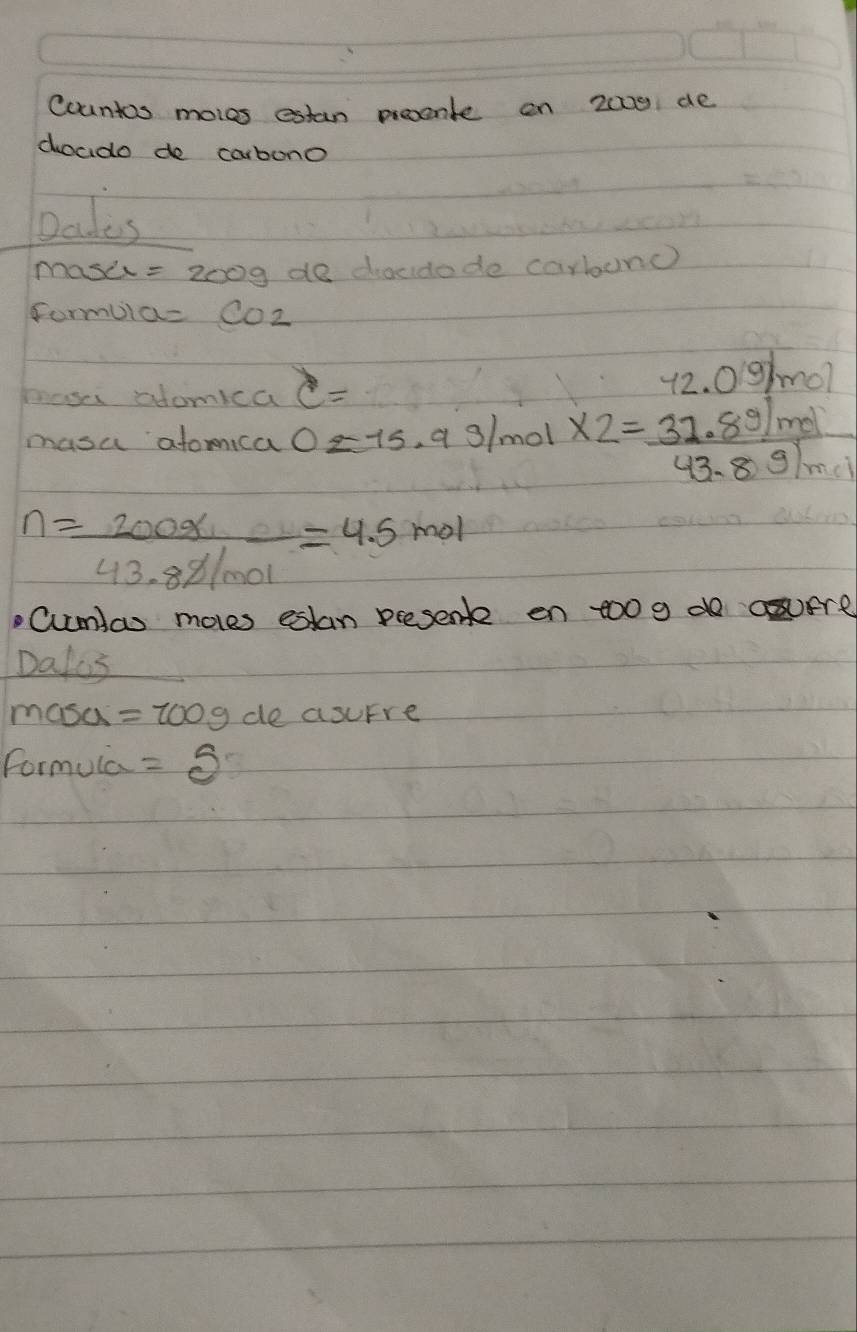 Cuantos moles estan presente en 200g de
dioxido de carbono
Datos
masa = 200g de dioxido de carbono
formula = CO2
masa atomica C = 12.0 g/mol
masa atomica O = 15.9 g/mol X2 = 31.8 g/mol
43.8 g/mol
n = 200g = 4.5 mol
43.8 g/mol
• Cuantas moles estan presente en 100 g de azufre
Datos
masa = 100g de asufre
formula = S